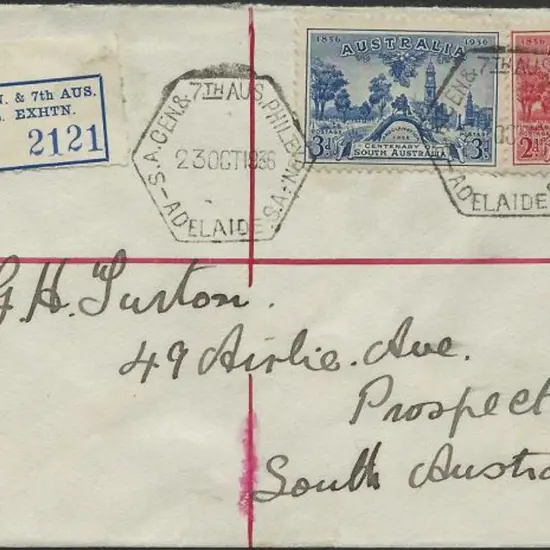 N. & 7th AUS.
EXHTN.
2121
S.A. CEN. & 7TH AUS. PHIL. EXN.
23 OCT 1936
ADELAIDE. S.A.
1836 1936
AUSTRALIA
POSTAGE POSTAGE
3d. CENTENARY OF 3d.
SOUTH AUSTRALIA
1836
2d.
CEN. & 7TH AUS
ADELAIDE
G. H. Turton.
49 Airlie. Ave.
Prospect
South Austra